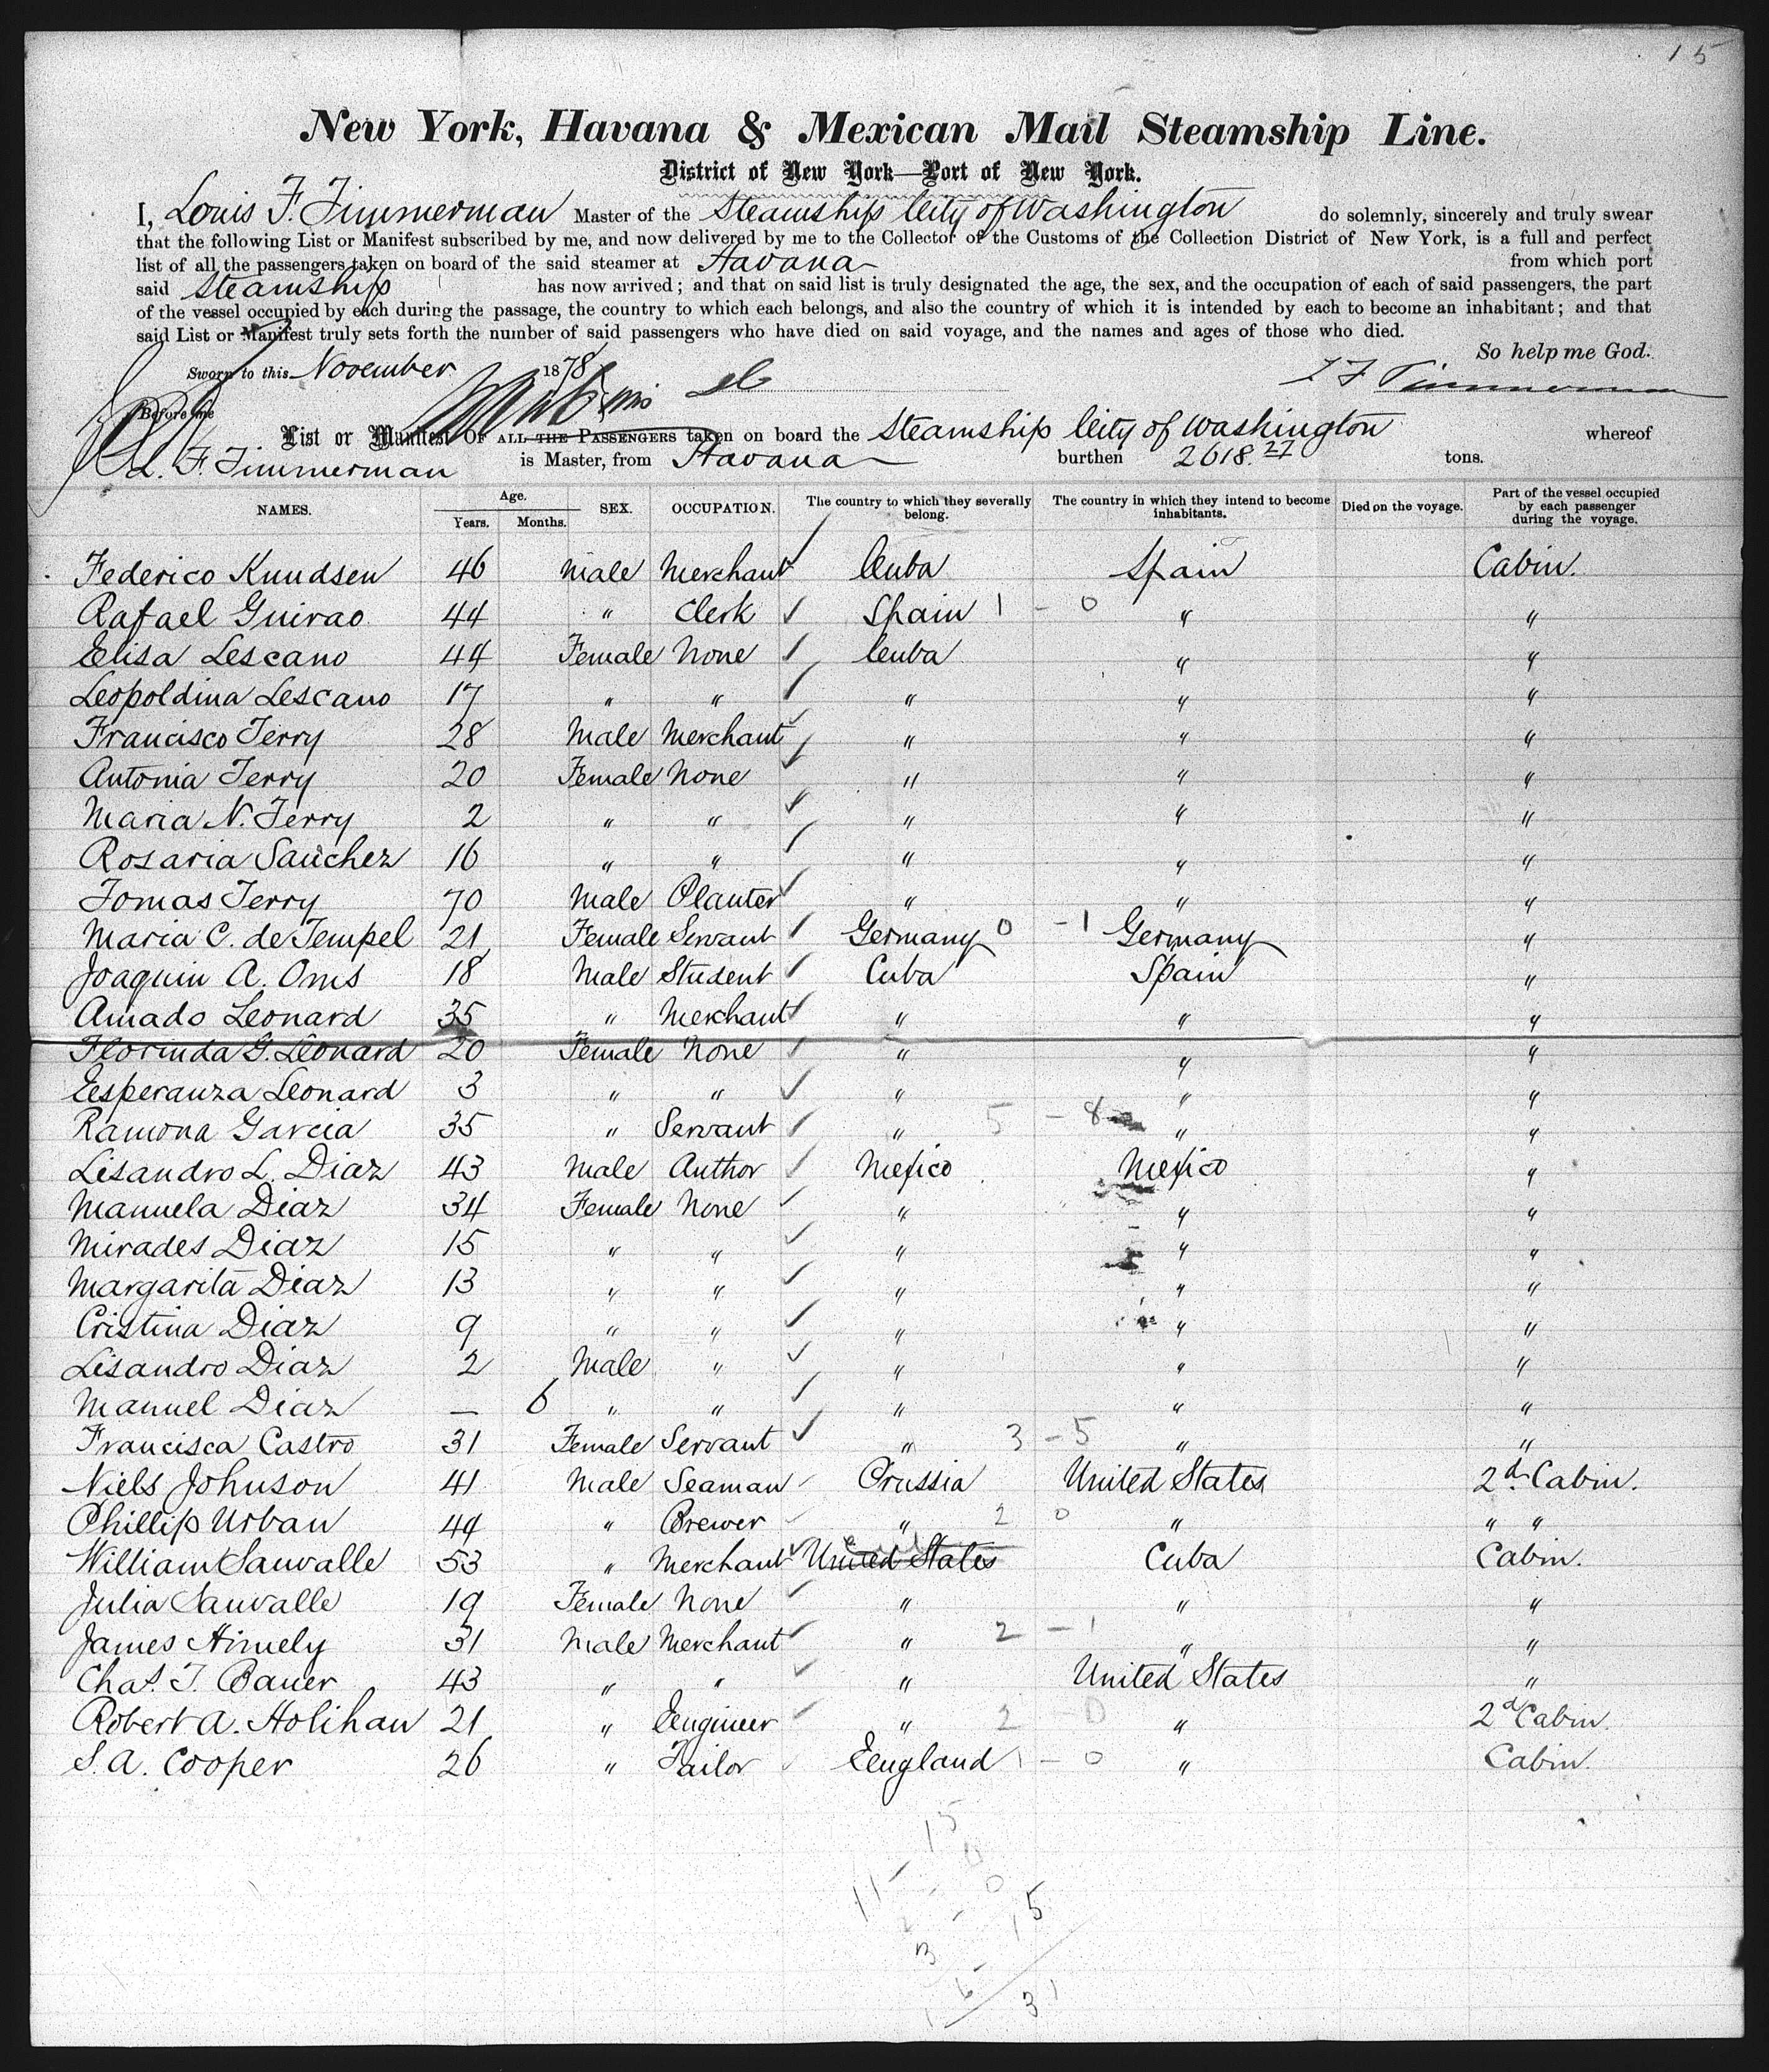 15
New York, Havana & Mexican Mail Steamship Line.
District of New York—Port of New York.
I, Louis F. Timmerman Master of the Steamship City of Washington do solemnly, sincerely and truly swear
that the following List or Manifest subscribed by me, and now delivered by me to the Collector of the Customs of the Collection District of New York, is a full and perfect
list of all the passengers taken on board of the said steamer at Havana from which port
said Steamship has now arrived; and that on said list is truly designated the age, the sex, and the occupation of each of said passengers, the part
of the vessel occupied by each during the passage, the country to which each belongs, and also the country of which it is intended by each to become an inhabitant; and that
said List or Manifest truly sets forth the number of said passengers who have died on said voyage, and the names and ages of those who died.
So help me God.
Sworn to this November 1878 L F Timmerman
Before me
List or Manifest OF ALL THE PASSENGERS taken on board the Steamship City of Washington whereof
L. F. Timmerman is Master, from Havana burthen 2618.27 tons.
NAMES. Age. Years. Months. SEX. OCCUPATION. The country to which they severally belong. The country in which they intend to become inhabitants. Died on the voyage. Part of the vessel occupied by each passenger during the voyage.
Federico Knudsen 46 Male Merchant Cuba Spain Cabin.
Rafael Guirao 44 " Clerk Spain 1 - 0 " "
Elisa Lescano 44 Female None Cuba " "
Leopoldina Lescano 17 " " " " "
Francisco Terry 28 Male Merchant " " "
Antonia Terry 20 Female None " " "
Maria N. Terry 2 " " " " "
Rosaria Sanchez 16 " " " " "
Tomas Terry 70 Male Planter " " "
Maria C. de Tempel 21 Female Servant Germany 0 - 1 Germany "
Joaquin A. Oms 18 Male Student Cuba Spain "
Amado Leonard 35 " Merchant " " "
Florinda G. Leonard 20 Female None " " "
Esperanza Leonard 3 " " " " "
Ramona Garcia 35 " Servant " 5 - 8 " "
Lisandro L. Diaz 43 Male Author Mexico Mexico "
Manuela Diaz 34 Female None " " "
Mirades Diaz 15 " " " " "
Margarita Diaz 13 " " " " "
Cristina Diaz 9 " " " " "
Lisandro Diaz 2 Male " " " "
Manuel Diaz — 6 " " " " "
Francisca Castro 31 Female Servant " 3 - 5 " "
Niels Johnson 41 Male Seaman Prussia United States 2d Cabin.
Phillip Urban 44 " Brewer " 2 0 " " "
William Sauvalle 53 " Merchant United States Cuba Cabin.
Julia Sauvalle 19 Female None " " "
James Himely 31 Male Merchant " 2 - 1 " "
Chas. T. Bauer 43 " " " United States "
Robert A. Holihan 21 " Engineer " 2 - 0 " 2d Cabin.
S. A. Cooper 26 " Tailor England 1 - 0 " Cabin.
15
11 -
0
3 - 15
31